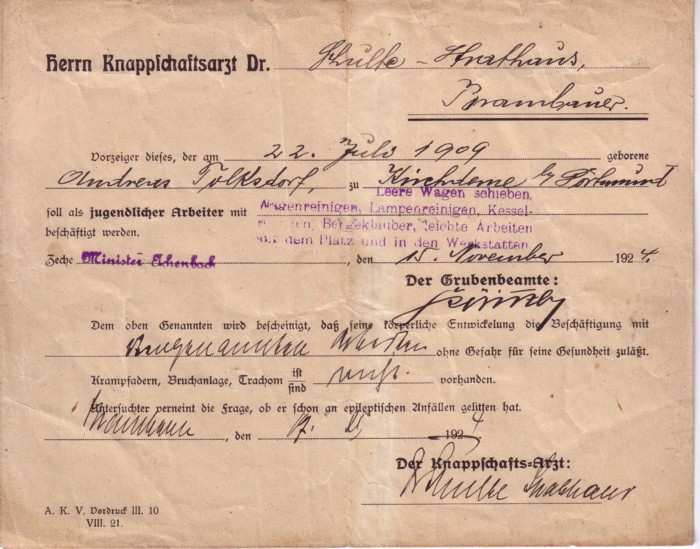 Herrn Knappschaftsarzt Dr. Schulte-Strathaus,
Brambauer.
Vorzeiger dieses, der am 22. Juli 1909 geborene
Andreas Tolksdorf, zu Kirchderne b/ Dortmund
soll als jugendlicher Arbeiter mit Leere Wagen schieben,
Wagenreinigen, Lampenreinigen, Kessel-
Bergeklauber, leichte Arbeiten
beschäftigt werden. auf dem Platz und in den Werkstätten
Zeche Minister Achenbach, den 15. November 1924.
Der Grubenbeamte:
Dem oben Genannten wird bescheinigt, daß seine körperliche Entwickelung die Beschäftigung mit
Arbeiten ohne Gefahr für seine Gesundheit zuläßt.
Krampfadern, Bruchanlage, Trachom ist/sind nicht vorhanden.
Untersuchter verneint die Frage, ob er schon an epileptischen Anfällen gelitten hat.
Brambauer, den 17. 11. 1924
Der Knappschafts-Arzt:
Dr Schulte Strathaus
A. K. V. Vordruck III. 10
VIII. 21.